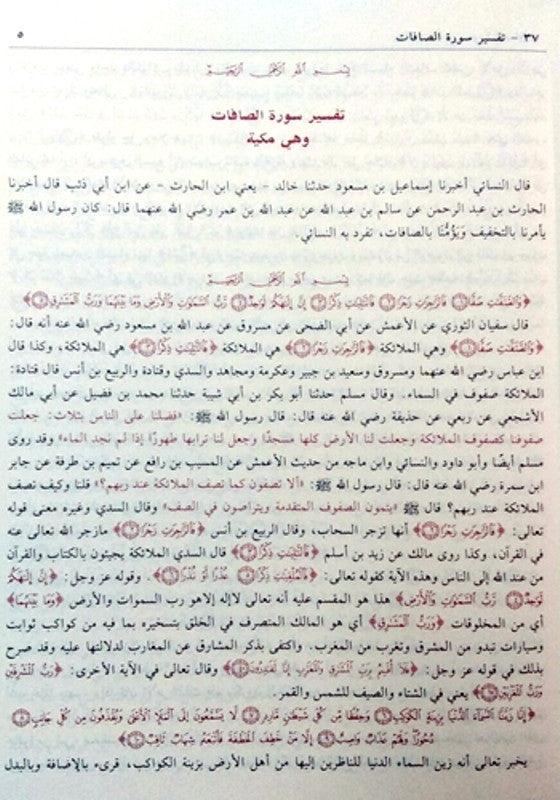 ٣٧ - تفسير سورة الصافات ٥
بسم الله الرحمن الرحيم
تفسير سورة الصافات
وهي مكية
قال النسائي أخبرنا إسماعيل بن مسعود حدثنا خالد - يعني ابن الحارث - عن ابن أبي ذئب قال أخبرنا
الحارث بن عبد الرحمن عن سالم بن عبد الله عن عبد الله بن عمر رضي الله عنهما قال: كان رسول الله ﷺ
يأمرنا بالتخفيف ويَؤُمُّنا بالصافات، تفرد به النسائي.
بسم الله الرحمن الرحيم
﴿وَالصَّافَّاتِ صَفًّا ۝ فَالزَّاجِرَاتِ زَجْرًا ۝ فَالتَّالِيَاتِ ذِكْرًا ۝ إِنَّ إِلَٰهَكُمْ لَوَاحِدٌ ۝ رَبُّ السَّمَاوَاتِ وَالْأَرْضِ وَمَا بَيْنَهُمَا وَرَبُّ الْمَشَارِقِ ۝﴾
قال سفيان الثوري عن الأعمش عن أبي الضحى عن مسروق عن عبد الله بن مسعود رضي الله عنه أنه قال:
﴿وَالصَّافَّاتِ صَفًّا ۝﴾ وهي الملائكة ﴿فَالزَّاجِرَاتِ زَجْرًا ۝﴾ هي الملائكة ﴿فَالتَّالِيَاتِ ذِكْرًا ۝﴾ هي الملائكة، وكذا قال
ابن عباس رضي الله عنهما ومسروق وسعيد بن جبير وعكرمة ومجاهد والسدي وقتادة والربيع بن أنس قال قتادة:
الملائكة صفوف في السماء. وقال مسلم حدثنا أبو بكر بن أبي شيبة حدثنا محمد بن فضيل عن أبي مالك
الأشجعي عن ربعي عن حذيفة رضي الله عنه قال: قال رسول الله ﷺ: «فضلنا على الناس بثلاث: جعلت
صفوفنا كصفوف الملائكة وجعلت لنا الأرض كلها مسجدًا وجعل لنا ترابها طهورًا إذا لم نجد الماء» وقد روى
مسلم أيضًا وأبو داود والنسائي وابن ماجه من حديث الأعمش عن المسيب بن رافع عن تميم بن طرفة عن جابر
ابن سمرة رضي الله عنه قال: قال رسول الله ﷺ: «ألا تصفون كما تصف الملائكة عند ربهم؟» قلنا وكيف تصف
الملائكة عند ربهم؟ قال ﷺ «يتمون الصفوف المتقدمة ويتراصون في الصف» وقال السدي وغيره معنى قوله
تعالى: ﴿فَالزَّاجِرَاتِ زَجْرًا ۝﴾ أنها تزجر السحاب، وقال الربيع بن أنس ﴿فَالزَّاجِرَاتِ زَجْرًا ۝﴾ مازجر الله تعالى عنه
في القرآن، وكذا روى مالك عن زيد بن أسلم ﴿فَالتَّالِيَاتِ ذِكْرًا ۝﴾ قال السدي الملائكة يجيئون بالكتاب والقرآن
من عند الله إلى الناس وهذه الآية كقوله تعالى: ﴿فَالْمُلْقِيَاتِ ذِكْرًا ۝ عُذْرًا أَوْ نُذْرًا ۝﴾. وقوله عز وجل: ﴿إِنَّ إِلَٰهَكُمْ
لَوَاحِدٌ ۝ رَبُّ السَّمَاوَاتِ وَالْأَرْضِ﴾ هذا هو المقسم عليه أنه تعالى لاإله إلاهو رب السموات والأرض ﴿وَمَا بَيْنَهُمَا﴾
أي من المخلوقات ﴿وَرَبُّ الْمَشَارِقِ﴾ أي هو المالك المتصرف في الخلق بتسخيره بما فيه من كواكب ثوابت
وسيارات تبدو من المشرق وتغرب من المغرب. واكتفى بذكر المشارق عن المغارب لدلالتها عليه وقد صرح
بذلك في قوله عز وجل: ﴿فَلَا أُقْسِمُ بِرَبِّ الْمَشَارِقِ وَالْمَغَارِبِ إِنَّا لَقَادِرُونَ ۝﴾ وقال تعالى في الآية الأخرى: ﴿رَبُّ الْمَشْرِقَيْنِ
وَرَبُّ الْمَغْرِبَيْنِ ۝﴾ يعني في الشتاء والصيف للشمس والقمر.
﴿إِنَّا زَيَّنَّا السَّمَاءَ الدُّنْيَا بِزِينَةٍ الْكَوَاكِبِ ۝ وَحِفْظًا مِنْ كُلِّ شَيْطَانٍ مَارِدٍ ۝ لَا يَسَّمَّعُونَ إِلَى الْمَلَإِ الْأَعْلَىٰ وَيُقْذَفُونَ مِنْ كُلِّ جَانِبٍ ۝
دُحُورًا وَلَهُمْ عَذَابٌ وَاصِبٌ ۝ إِلَّا مَنْ خَطِفَ الْخَطْفَةَ فَأَتْبَعَهُ شِهَابٌ ثَاقِبٌ ۝﴾
يخبر تعالى أنه زين السماء الدنيا للناظرين إليها من أهل الأرض بزينة الكواكب، قرىء بالإضافة وبالبدل